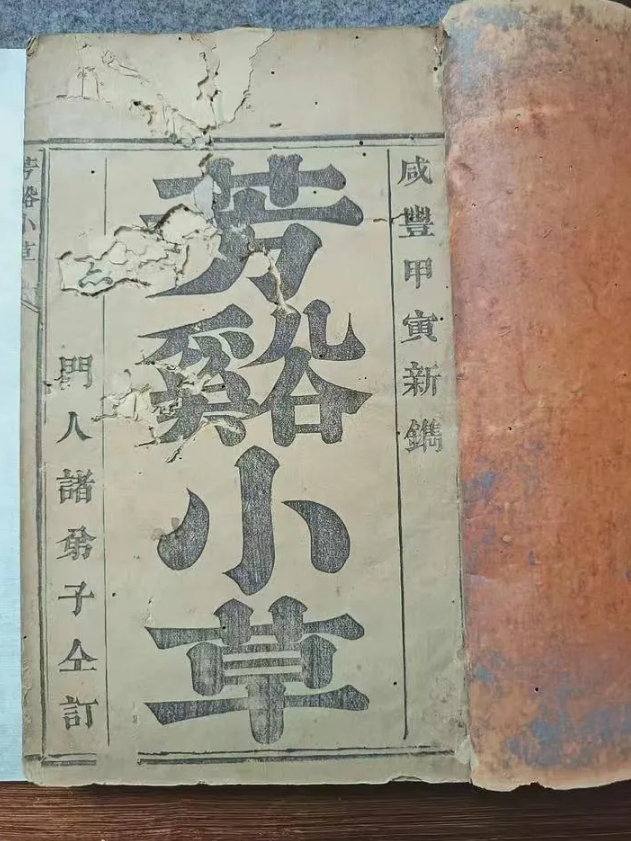 咸豐甲寅新鐫
芳谿小草
門人諸弟子仝訂
芳谿小草